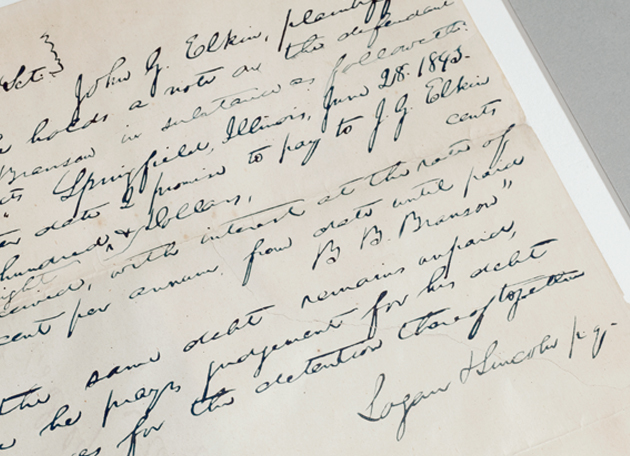 Sct. John G. Elkin, plaintiff
holds a note on the defendant
Branson in substance as followeth:
" Springfield, Illinois, June 28. 1843.
date I promise to pay to J. G. Elkin
hundred & Dollars, cents
with interest at the rate of
cent per annum from date until paid
B. B. Branson"
the same debt remains unpaid,
he prays judgement for his debt
for the detention thereof together
Logan & Lincoln p.q.